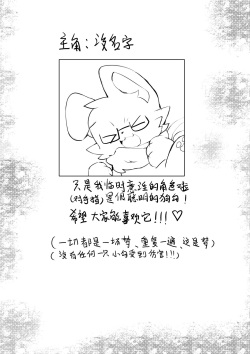 主角：没名字
只是我临时意淫的角色啦
(对手指)是很聪明的狗勾！
希望大家能喜欢它!!!♡
(一切都是一场梦、重复一遍、这是梦)
(没有任何一只小勾受到伤害!!!)